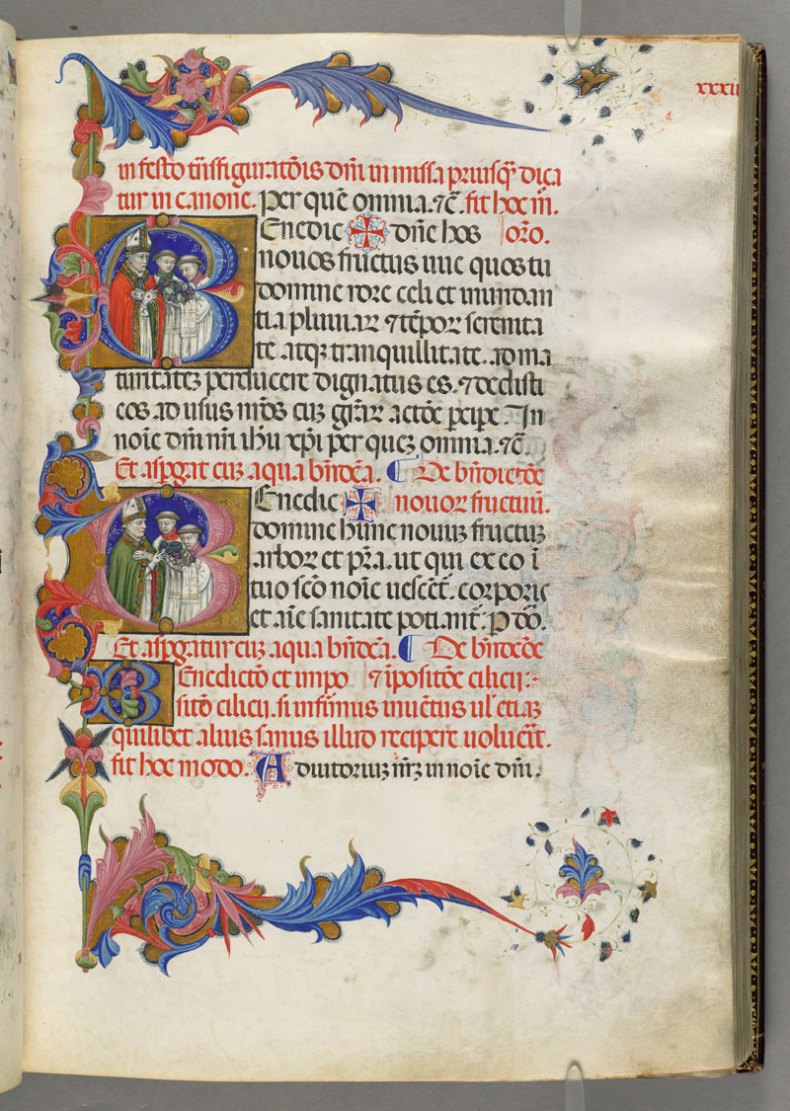 xxxii
in festo t̄nsfiguratōis dn̄i in missa priusq̄ dica
tur in canone. per quē omnia. ⁊c̄. fit hoc m̄.
Benedic ✠ dn̄e hos or̄o.
nouos fructus uue quos tu
domine rore celi et inundan
tia pluuiaꝝ ⁊ tēpoꝝ serenita
te atqꝫ tranquillitate. ad ma
turitateꝫ perducere dignatus es. ⁊ dedisti
eos ad usus nr̄os cuꝫ gr̄aꝝ actōe p̄cipe. In
noīe dn̄i nr̄i ihu xp̄i per queꝫ omnia. ⁊c̄.
Et asp̄gat̄ cuꝫ aqua bn̄dc̄a. De bn̄dictōe
Benedic ✠ nouoꝝ fructuū.
domine hunc nouuꝫ fructuꝫ
arboꝝ et p̄ra. ut qui ex eo ī
tuo sc̄o noīe uescēt̄. corporis
et aīe sanitate potiant̄. P dō.
Et asp̄gatur cuꝫ aqua bn̄dc̄a. De bn̄dc̄ōe
Benedictō et impo ⁊ īpositōe cilicij
sitō cilicij. si infirmus inuētus ul̄ etiaꝫ
quilibet alius sanus illud recipere uoluerit.
fit hoc modo. Adiutoriuꝫ nr̄ꝫ in noīe dn̄i.